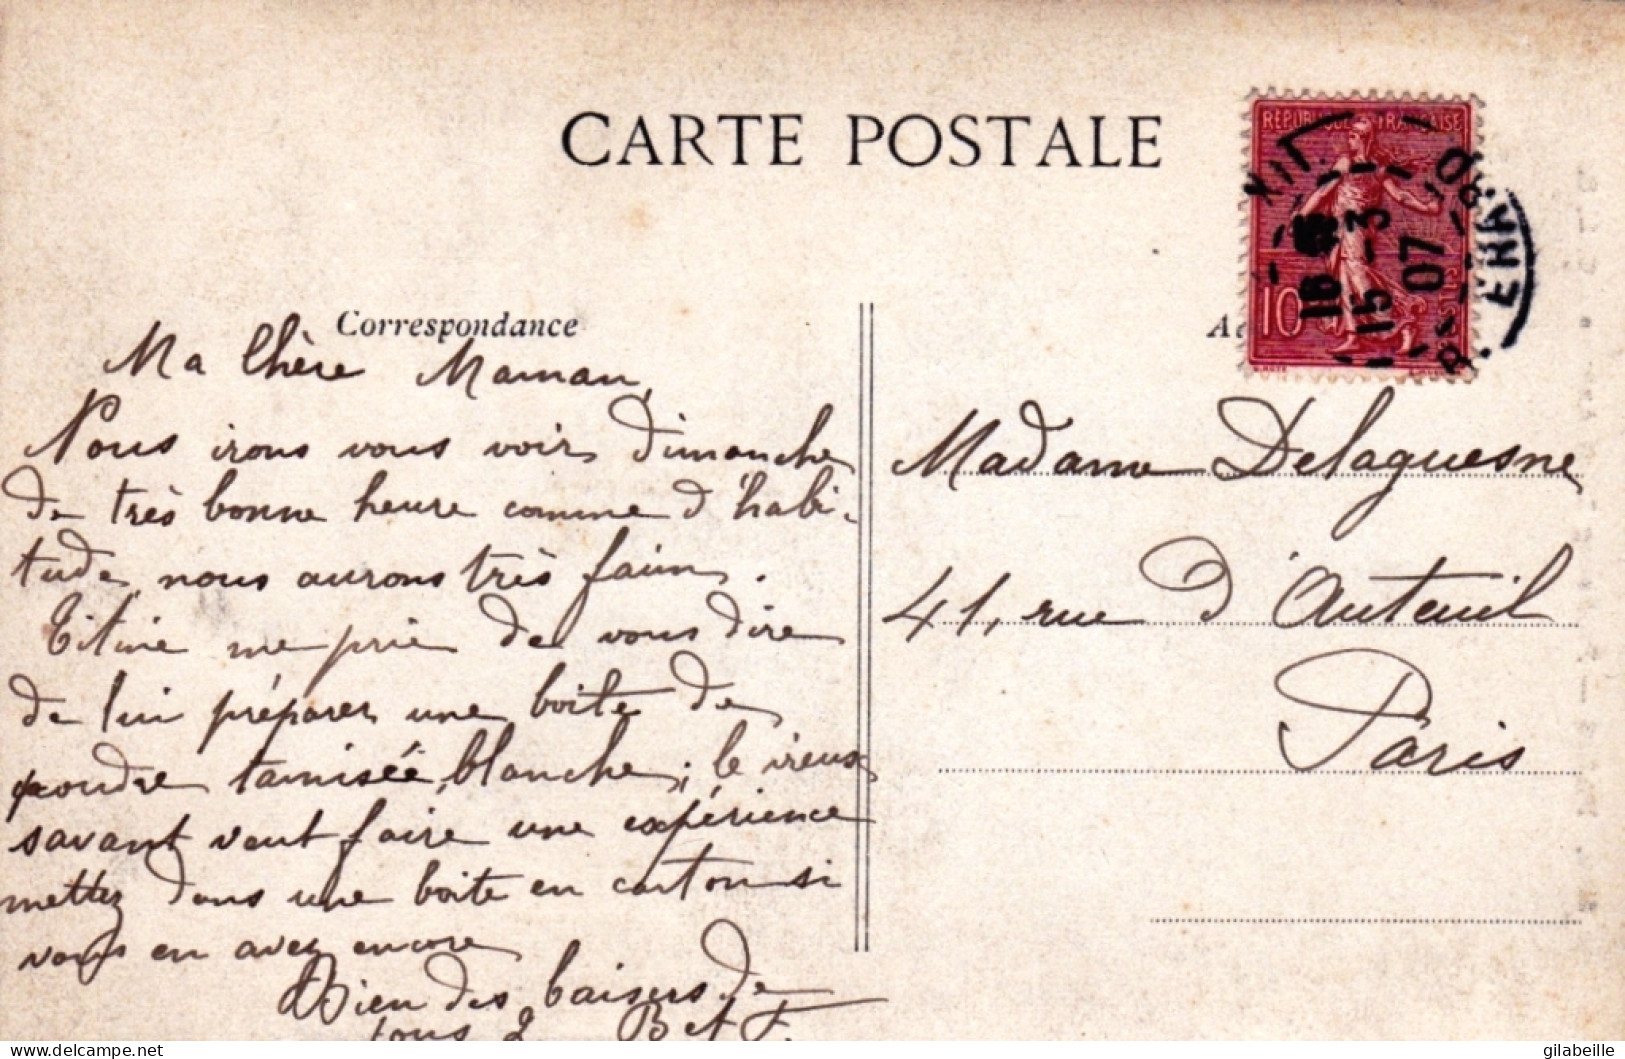 CARTE POSTALE
RÉPUBLIQUE FRANÇAISE
10
XII
15 - 3
07
R. ERARD
Correspondance
Ma Chère Maman,
Nous irons vous voir Dimanche
de très bonne heure comme d'habi-
tude, nous aurons très faim.
Titine me prie de vous dire
de lui préparer une boite de
poudre tamisée, blanche; le
savant veut faire une expérience
mettez dans une boite en carton si
vous en avez encore
Bien des baisers de
tous 2 B et F.
Madame Delaguesne
41, rue d'Auteuil
Paris
www.delcampe.net
gilabeille